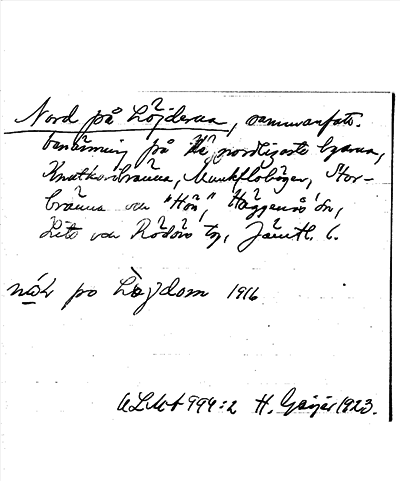 Nord på Löjderna, sammanfatt.
benämning på de nordligaste byarna,
Knutkvibränna, Munkflobågen, Stor-
bränna och "Hön", Häggenås sn,
Lits och Rödöns tg, Jämtl. l.
nọ̈ḷ po Löjdom 1916
ULMA 994:2 H. Geijer 1923.